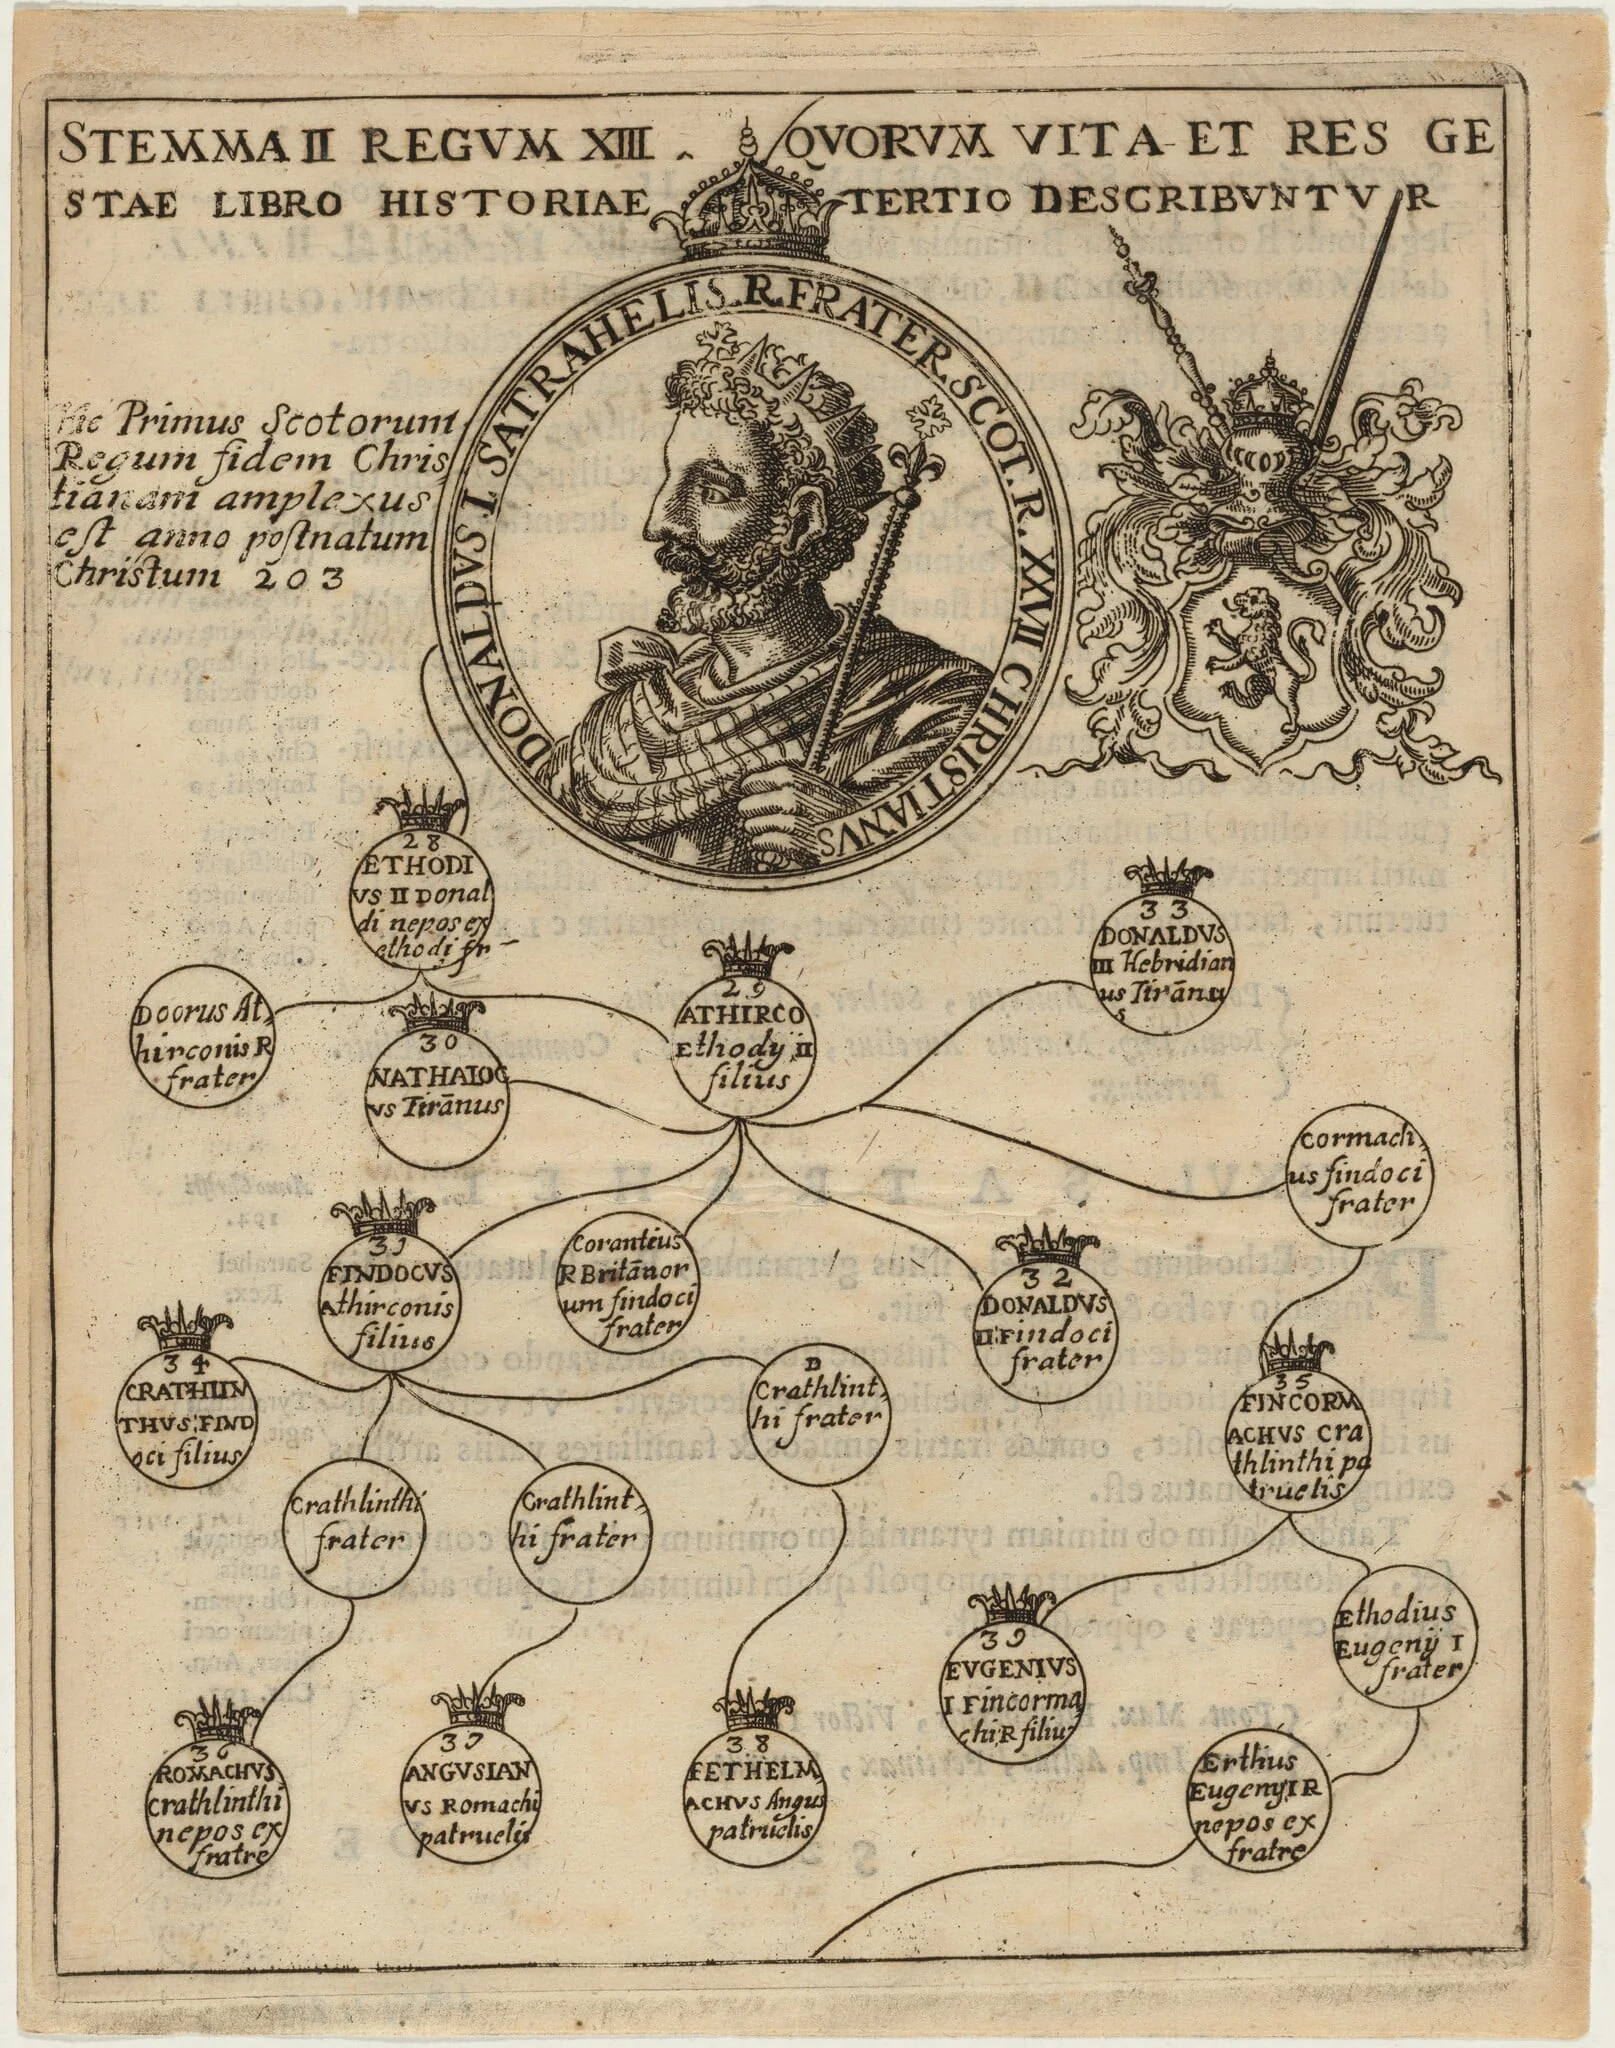 STEMMA II REGVM XIII . QVORVM VITA ET RES GE
STAE LIBRO HISTORIAE TERTIO DESCRIBVNTVR
DONALDVS I. SATRAHELIS. R. FRATER. SCOT. R. XXVII CHRISTIANVS
Hic Primus Scotorum
Regum fidem Chris
tianam amplexus
est anno postnatum
Christum 203
28
ETHODI
VS II Donal
di nepos ex
ethodi fr
33
DONALDVS
III Hebridian
us Tirānu
s
29
ATHIRCO
Ethody II
filius
Doorus At,
hirconis R
frater
30
NATHALOC
VS Tirānus
Cormach,
us findoci
frater
31
FINDOCVS
Athirconis
filius
Coranteus
R Britānor
um findoci
frater
32
DONALDVS
II Findoci
frater
34
CRATHLIN
THVS FIND
oci filius
D
Crathlint,
hi frater
35
FINCORM
ACHVS Cra
thlinthi pa
truelis
Crathlinthi
frater
Crathlint,
hi frater
39
EVGENIVS
I Fincorma
chi R filiu
Ethodius
Eugenij I
frater
36
ROMACHVS
Crathlinthi
nepos ex
fratre
37
ANGVSIAN
VS Romachi
patruelis
38
FETHELM,
ACHVS Angus
patruelis
Erthius
Eugenij I R
nepos ex
fratre